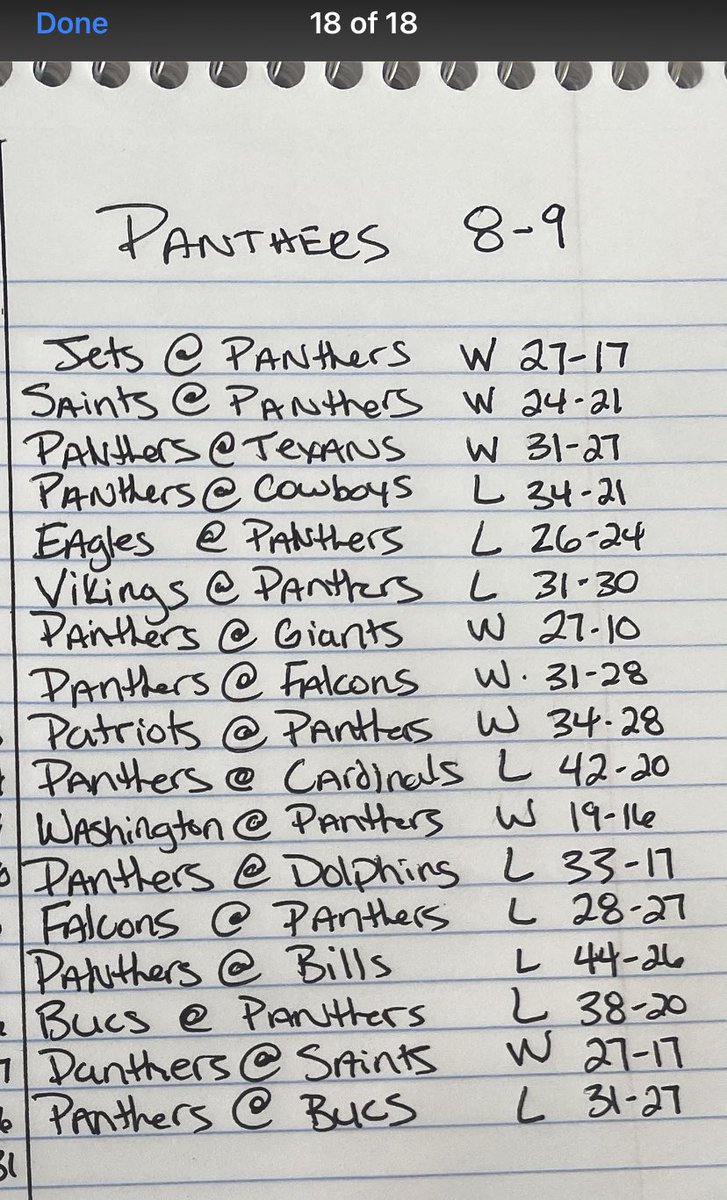 Done 18 of 18
PANTHERS 8-9
Jets @ PANthers W 27-17
SAints @ PANthers W 24-21
PANthers @ TexANS W 31-27
PANthers @ Cowboys L 34-21
EAgles @ PANthers L 26-24
Vikings @ PAnthrs L 31-30
PAnthers @ Giants W 27-10
PAnthers @ FAlcons W. 31-28
Patriots @ PAnthers W 34-28
PAnthers @ CArdinals L 42-20
WAshington @ PAnthers W 19-16
PAnthers @ Dolphins L 33-17
FAlcons @ PAnthers L 28-27
PANthers @ Bills L 44-26
Bucs @ PAnthers L 38-20
Panthers @ SAints W 27-17
PAnthers @ Bucs L 31-27